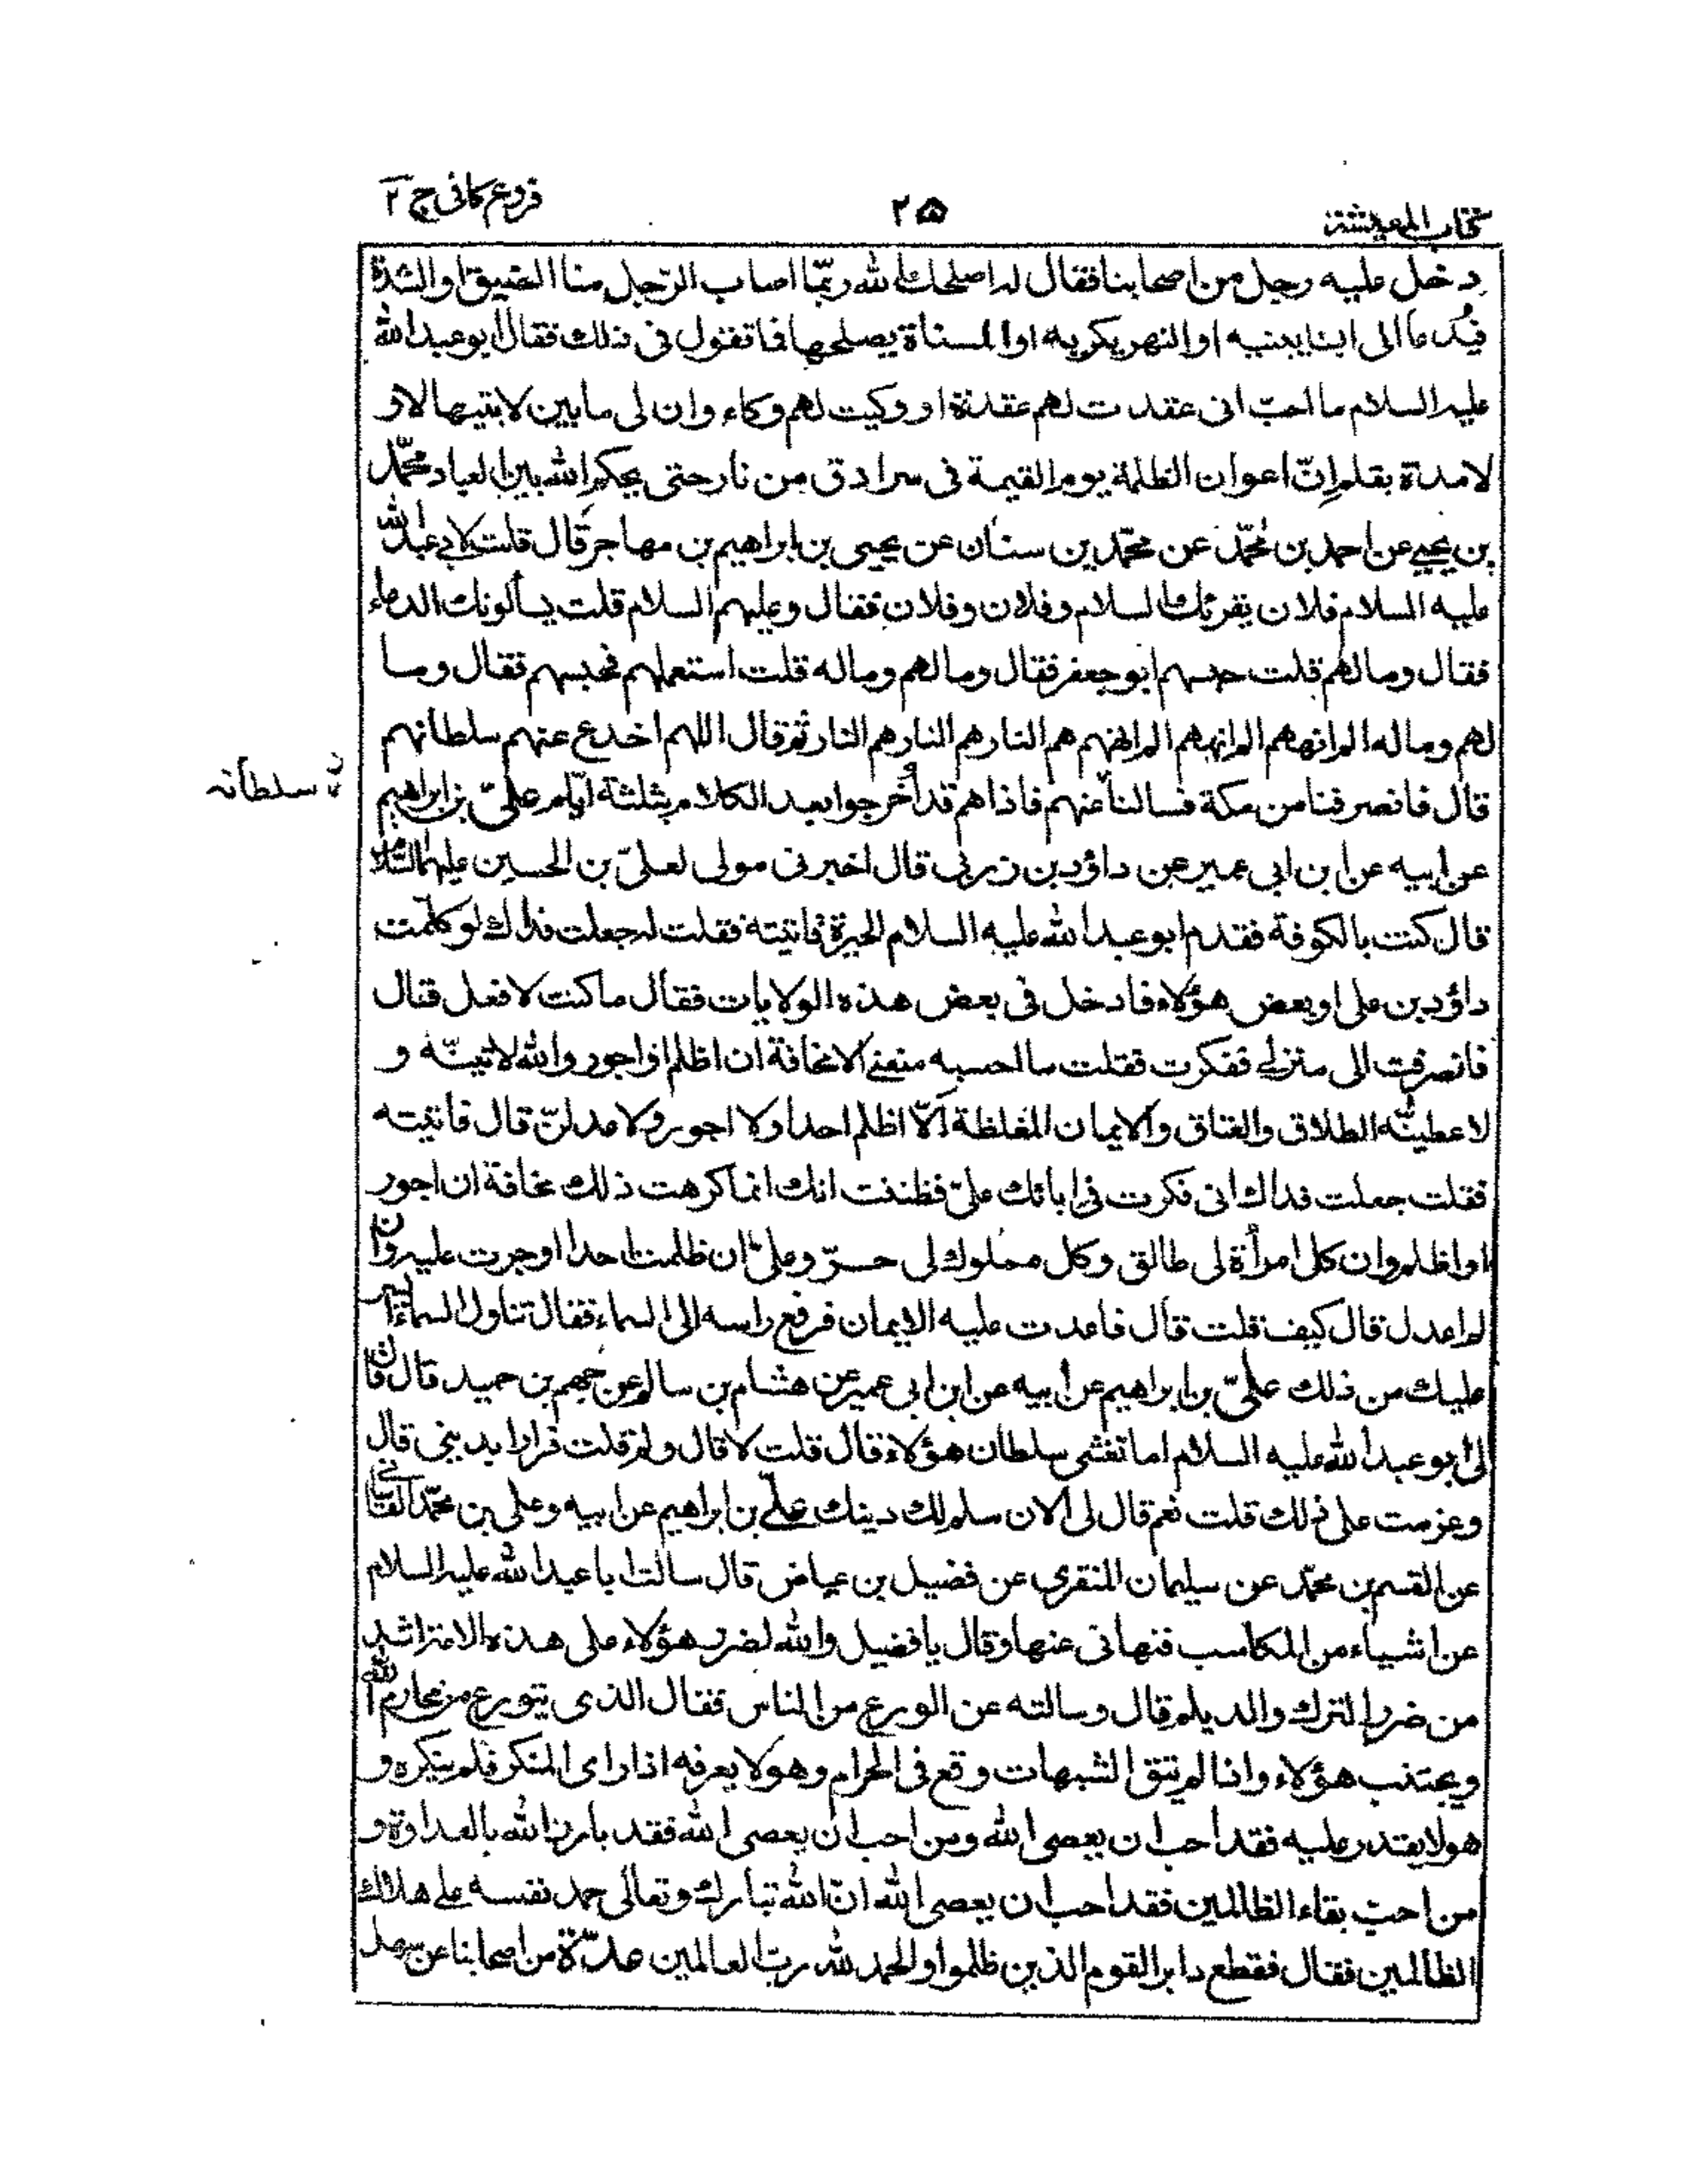 كتاب المعيشة
٢٥
فروع كافى ج ٢
دخل عليه رجل من اصحابنا فقال له اصلحك الله ربّما اصاب الرّجل منا الضيق او الشدة
فيُدعا الى البنا يبنيه او النهر يكريه او المسناة يصلحها فما تقول فى ذلك فقال ابو عبد الله
عليه السلام ما احبّ انى عقدت لهم عقدة او وكيت لهم وكاء وان لى ما بين لابتيها لا و
لا مدة بقلم انّ اعوان الظلمة يوم القيمة فى سرادق من نار حتى يحكم الله بين العباد محمّد
بن يحيى عن احمد بن محمّد عن محمّد بن سنان عن يحيى بن ابراهيم بن مهاجر قال قلت لابى عبد الله
عليه السلام فلان يقرئك السلام وفلان وفلان فقال وعليهم السلام قلت يسألونك الدعاء
فقال وما لهم قلت حبسهم ابو جعفر فقال وما لهم وماله قلت استعملهم فحبسهم فقال وما
لهم وماله الم انههم الم انههم الم انههم هم النار هم النار هم النار ثم قال اللهم اخدع عنهم سلطانهم
سلطانه
قال فانصرفنا من مكة فسالنا عنهم فاذا هم قد أخرجوا بعد الكلام بثلثة ايّام علىّ بن ابراهيم
عن ابيه عن ابن ابى عمير عن داؤد بن زربى قال اخبرنى مولى لعلىّ بن الحسين عليهما السّلام
قال كنت بالكوفة فقدم ابو عبد الله عليه السلام الحيرة فاتيته فقلت له جعلت فداك لو كلّمت
داؤد بن على او بعض هؤلاء فادخل فى بعض هذه الولايات فقال ما كنت لافعل قال
فانصرفت الى منزلى ففكرت فقلت ما احسبه منعنى الا مخافة ان اظلم او اجور والله لاتينّه و
لاعطينّه الطلاق والعتاق والايمان المغلظة الّا اظلم احدا ولا اجور ولا عدلنّ قال فاتيته
فقلت جعلت فداك انى فكرت فى ابائك علىّ فظننت انك انما كرهت ذلك مخافة ان اجور
او اظلم وان كل امرأة لى طالق وكل مملوك لى حرّ وعلىّ ان ظلمت احدا او جرت عليه وان
لم اعدل قال كيف قلت قال فاعدت عليه الايمان فرفع راسه الى السماء فقال تناول السماء ايسر
عليك من ذلك علىّ بن ابراهيم عن ابيه عن ابن ابى عمير عن هشام بن سالم عن جهم بن حميد قال قال
لى ابو عبد الله عليه السلام اما تغشى سلطان هؤلاء قال قلت لا قال ولم قلت فرارا بدينى قال
وعزمت على ذلك قلت نعم قال لى الان سلم لك دينك علىّ بن ابراهيم عن ابيه وعلى بن محمّد القاسانى
عن القسم بن محمّد عن سليمان المنقرى عن فضيل بن عياض قال سالت ابا عبد الله عليه السلام
عن اشياء من المكاسب فنهانى عنها وقال يا فضيل والله لضرر هؤلاء على هذه الامة اشد
من ضرر الترك والديلم قال وسالته عن الورع من الناس فقال الذى يتورع من محارم الله
ويجتنب هؤلاء واذا لم يتق الشبهات وقع فى الحرام وهو لا يعرفه اذا راى المنكر فلم ينكره و
هو لا يقدر عليه فقد احب ان يعصى الله ومن احب ان يعصى الله فقد بارز الله بالعداوة و
من احبّ بقاء الظالمين فقد احب ان يعصى الله ان الله تبارك وتعالى حمد نفسه على هلاك
الظالمين فقال فقطع دابر القوم الذين ظلموا والحمد لله ربّ العالمين عدّة من اصحابنا عن سهل